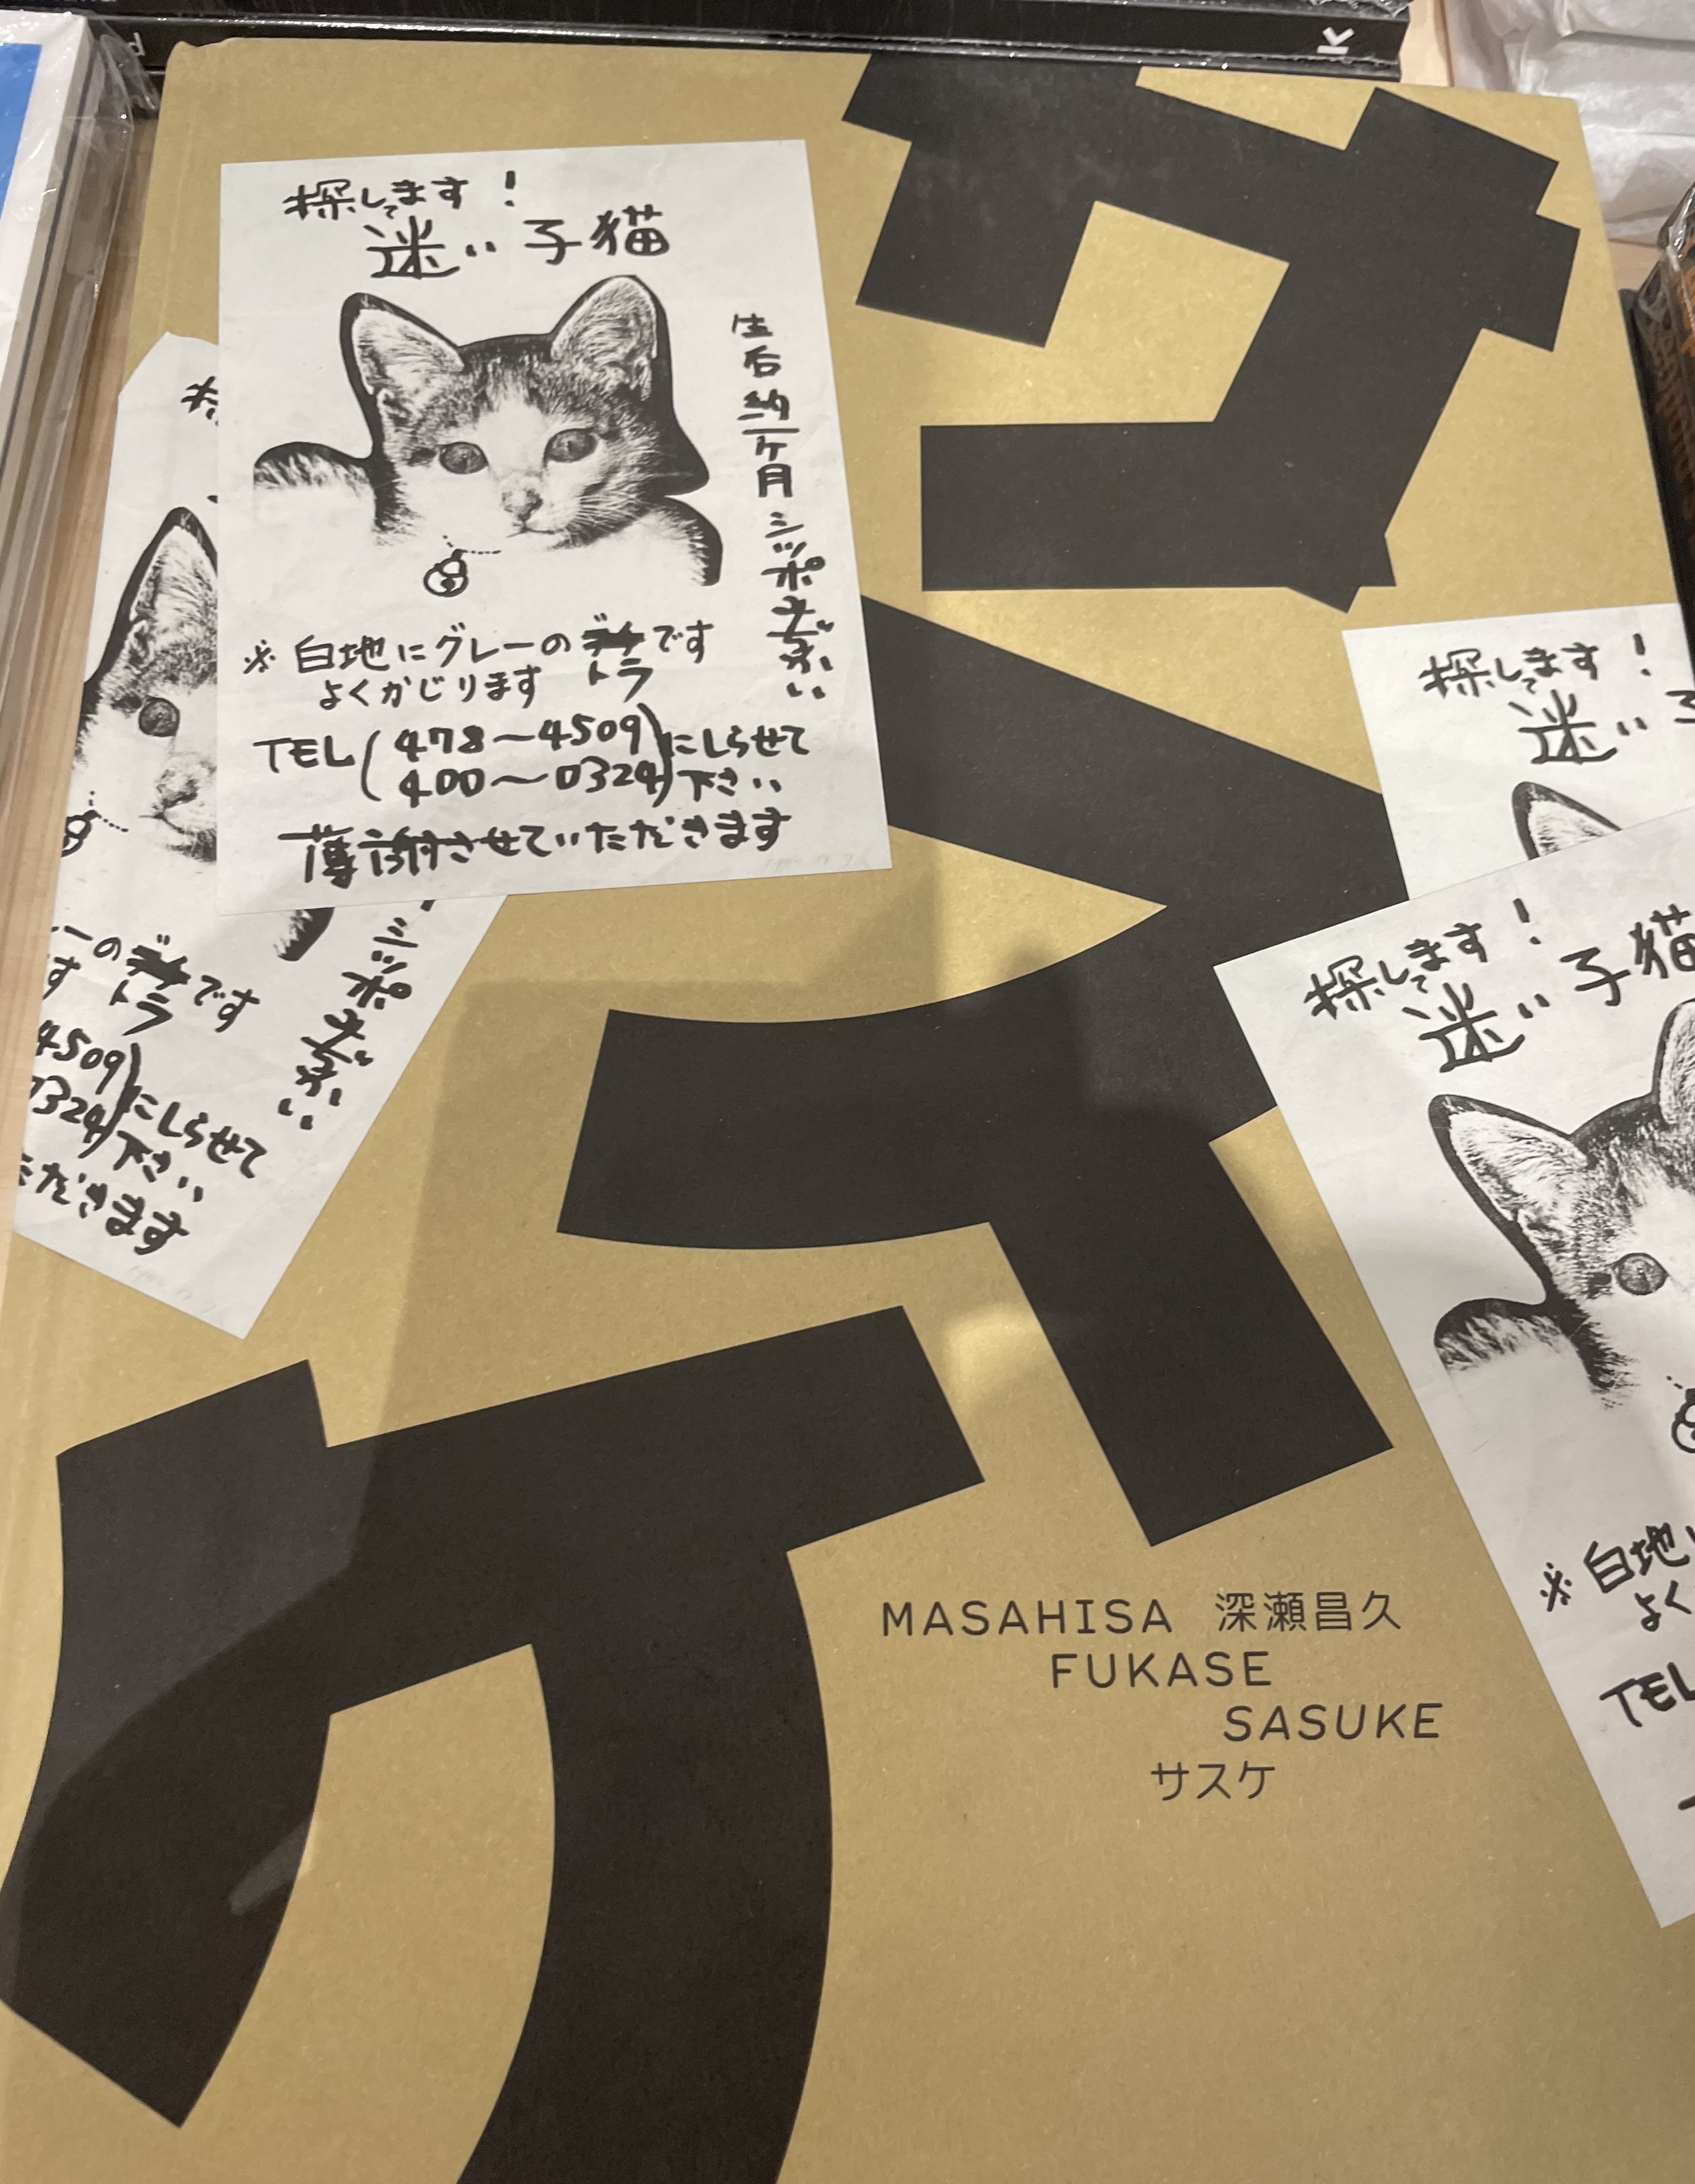 K
サスケ
探してます！
迷い子猫
生后約一ヶ月 シッポ
※白地にグレーのトラです
よくかじります
TEL(478〜4509
400〜0324)にしらせて
下さい
薄謝させていただきます
ーのトラです
す
4509
0324)にしらせて
下さい
ただきます
シッポ
探してます！
迷い子
探してます！
迷い子猫
※白地に
よく
TEL
MASAHISA 深瀬昌久
FUKASE
SASUKE
サスケ